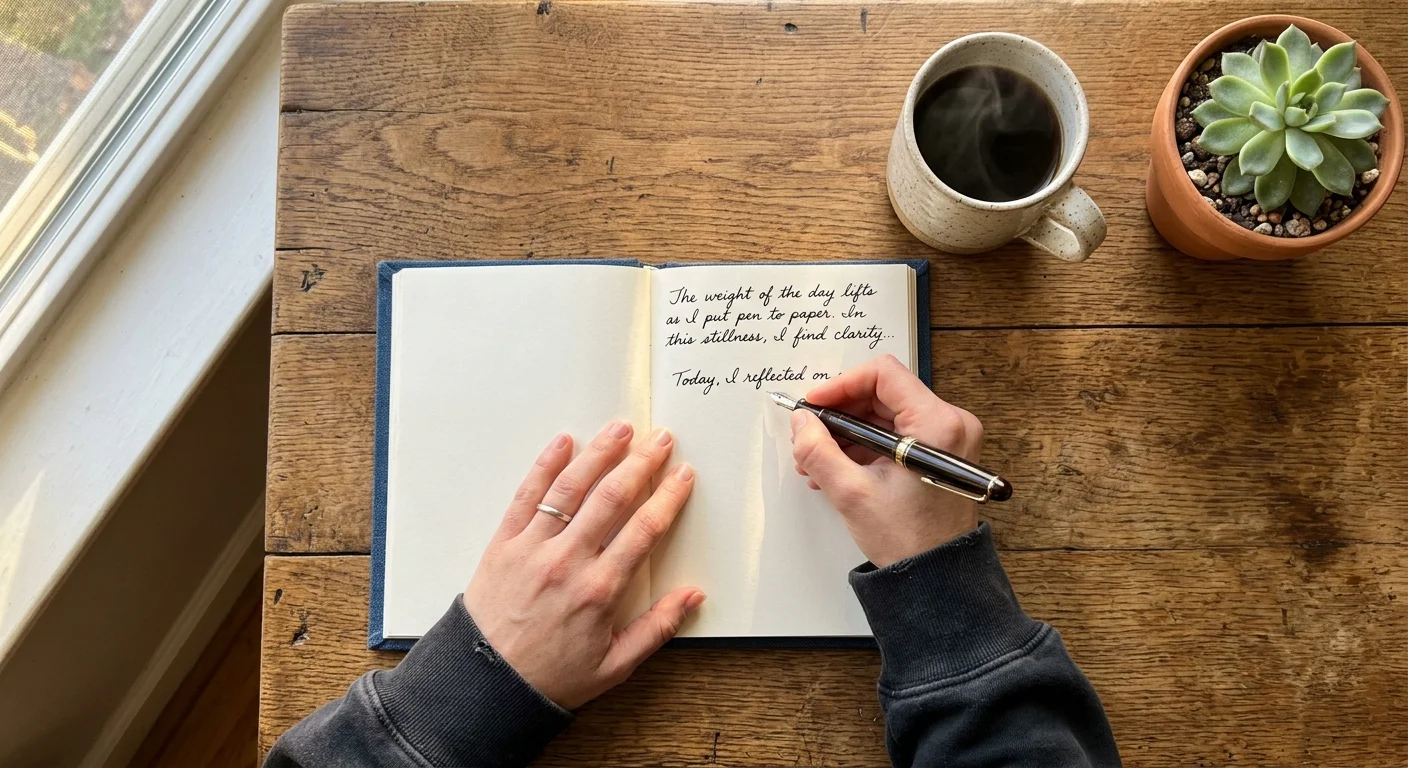 The weight of the day lifts
as I put pen to paper. In
this stillness, I find clarity...
Today, I reflected on